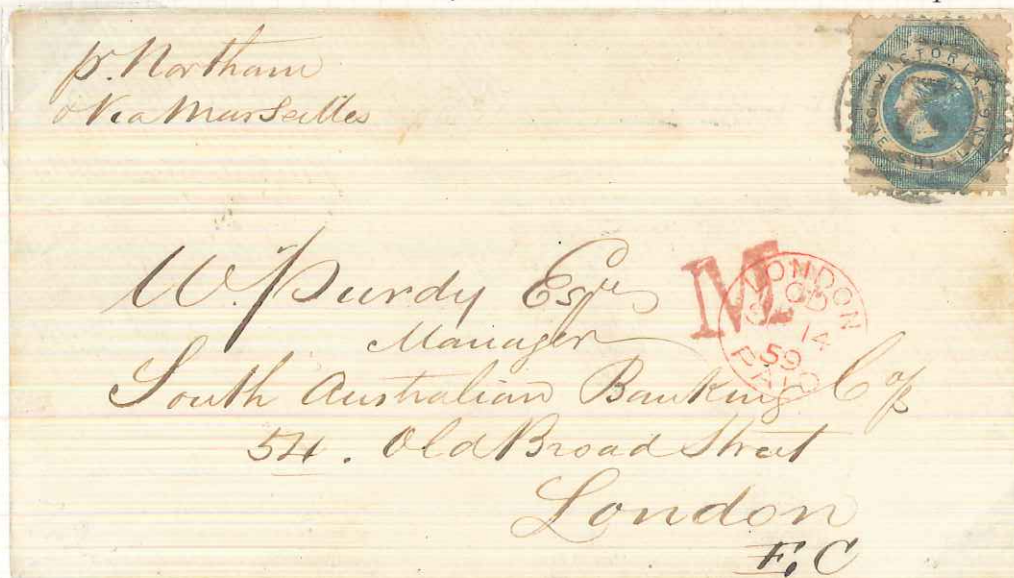 pr. Northam
via Marseilles
VICTORIA
ONE SHILLING
W. Purdy Esqre
M
LONDON
14
59
PAID
Manager
South Australian Banking Coy
54. Old Broad Street
London
E,C